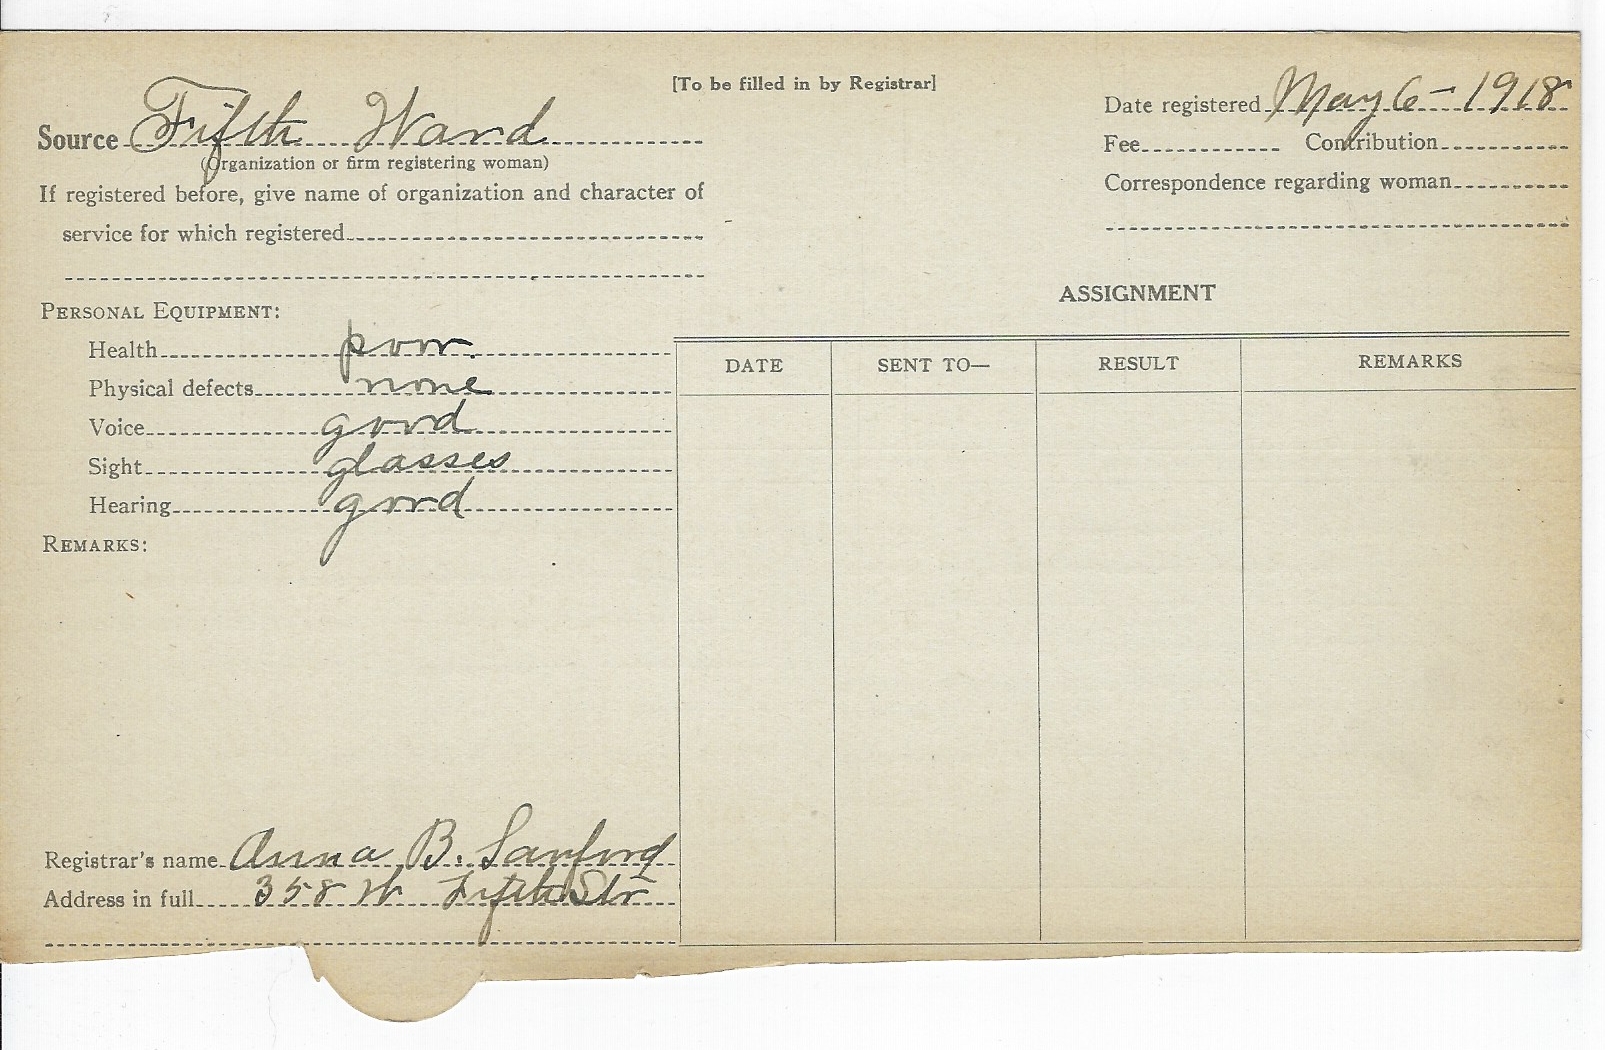 [To be filled in by Registrar]
Source Fifth Ward
(Organization or firm registering woman)
If registered before, give name of organization and character of
service for which registered
Date registered May 6 - 1918
Fee Contribution
Correspondence regarding woman
PERSONAL EQUIPMENT:
Health poor.
Physical defects none
Voice good
Sight glasses
Hearing good
REMARKS:
ASSIGNMENT
DATE SENT TO— RESULT REMARKS
Registrar's name Anna B. Sanford
Address in full 358 W Fifth Str